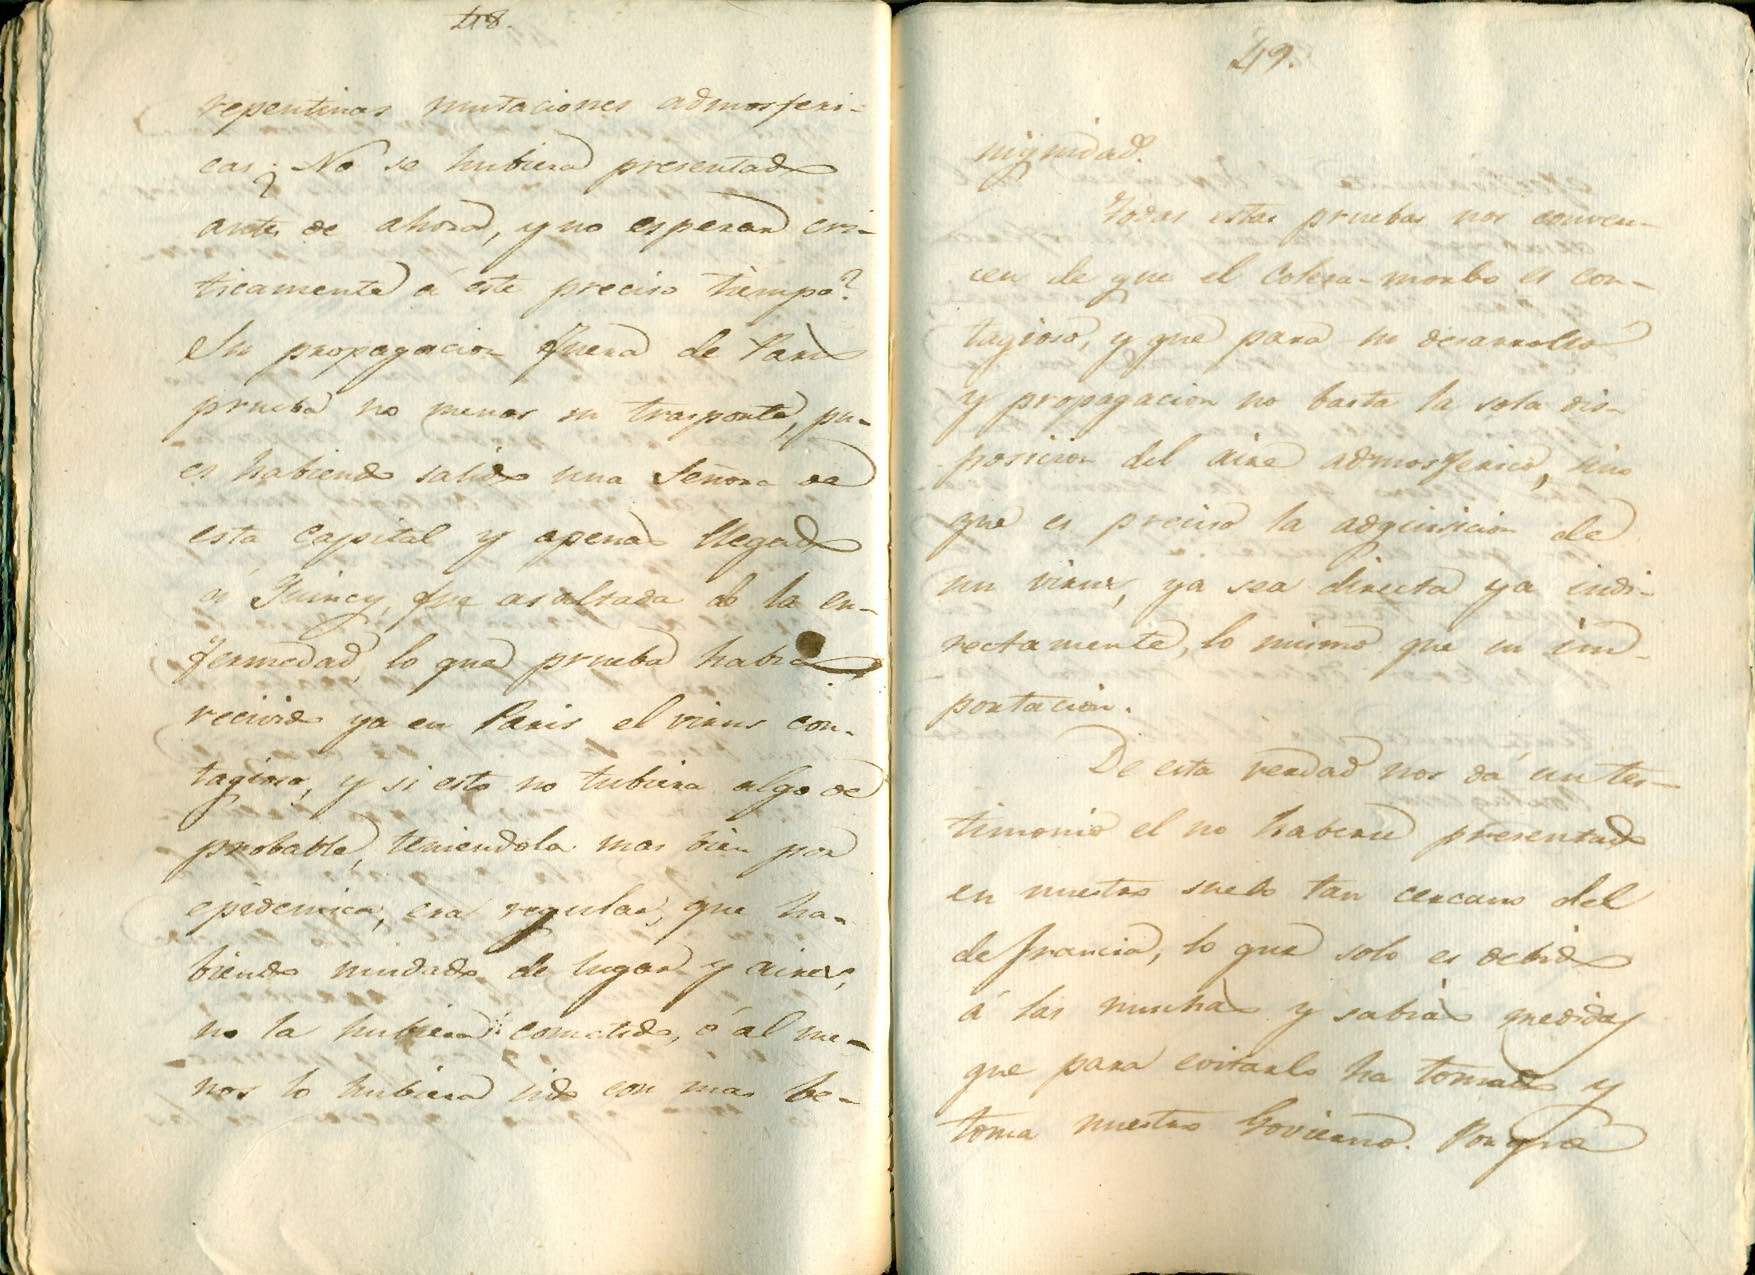 48.
repentinas mutaciones admosferi-
cas ¿No se hubiera presentado
antes de ahora, y no esperar cri-
ticamente á este preciso tiempo?
Su propagacion fuera de Paris
prueba no menos su trasporte, pu-
es habiendo salido una Señora de
esta capital y apenas llegado
á Quincy, fue asaltada de la en-
fermedad, lo que prueba habia
recivido ya en Paris el virus con-
tagioso, y si esto no tubiera algo de
probable, teniendola mas bien por
epidemica, era regular, que ha-
biendo mudado de lugar y aires,
no la hubiera acometido, ó al me-
nos lo hubiera sido con mas be-
49.
nignidad.
Todas estas pruebas nos conven-
cen de que el colera-morbo es con-
tagioso, y que para su desarrollo
y propagacion no basta la sola dis-
posicion del aire admosferico, sino
que es preciso la adquisicion de
un virus, ya sea directa ya indi-
rectamente, lo mismo que su im-
portacion.
De esta verdad nos dá un tes-
timonio el no haberse presentado
en nuestro suelo tan cercano del
de francia, lo que solo es debido
á las muchas y sabias medidas
que para evitarlo ha tomado y
toma nuestro Govierno. Porque